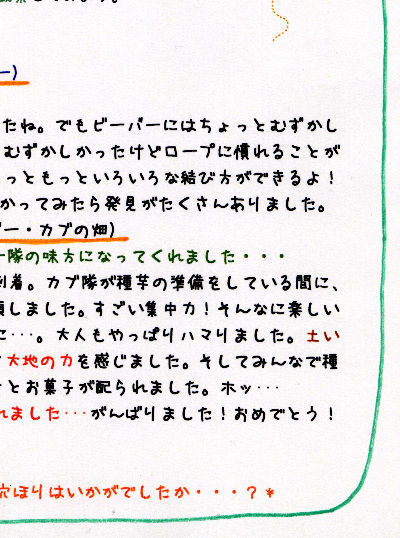 ー)
たね。でもビーバーにはちょっとむずかし
むずかしかったけどロープに慣れることが
っともっといろいろな結び方ができるよ!
かってみたら発見がたくさんありました。
ー・カブの畑)
隊の味方になってくれました・・・
到着。カブ隊が種芋の準備をしている間に、
しました。すごい集中力!そんなに楽しい
に・・・。大人もやっぱりハマりました。土い
大地の力を感じました。そしてみんなで種
とお菓子が配られました。ホッ・・・
れました・・・がんばりました!おめでとう!
穴ほりはいかがでしたか・・・?*